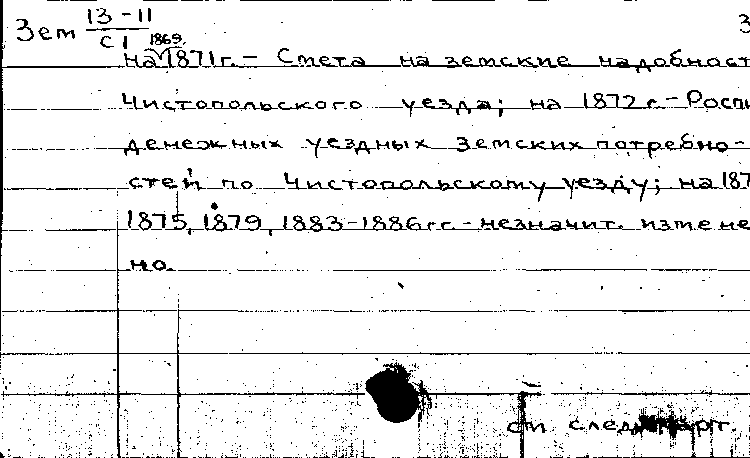 Зем 13-11 3
С1 1869.
на 1871 г. - Смета на земские надобност
Чистопольского уезда; на 1872 г. - Роспи
денежных уездных земских потребно-
стей по Чистопольскому уезду; на 187
1875, 1879, 1883-1886 гг. - незначит. измене
но.
см след. карт.